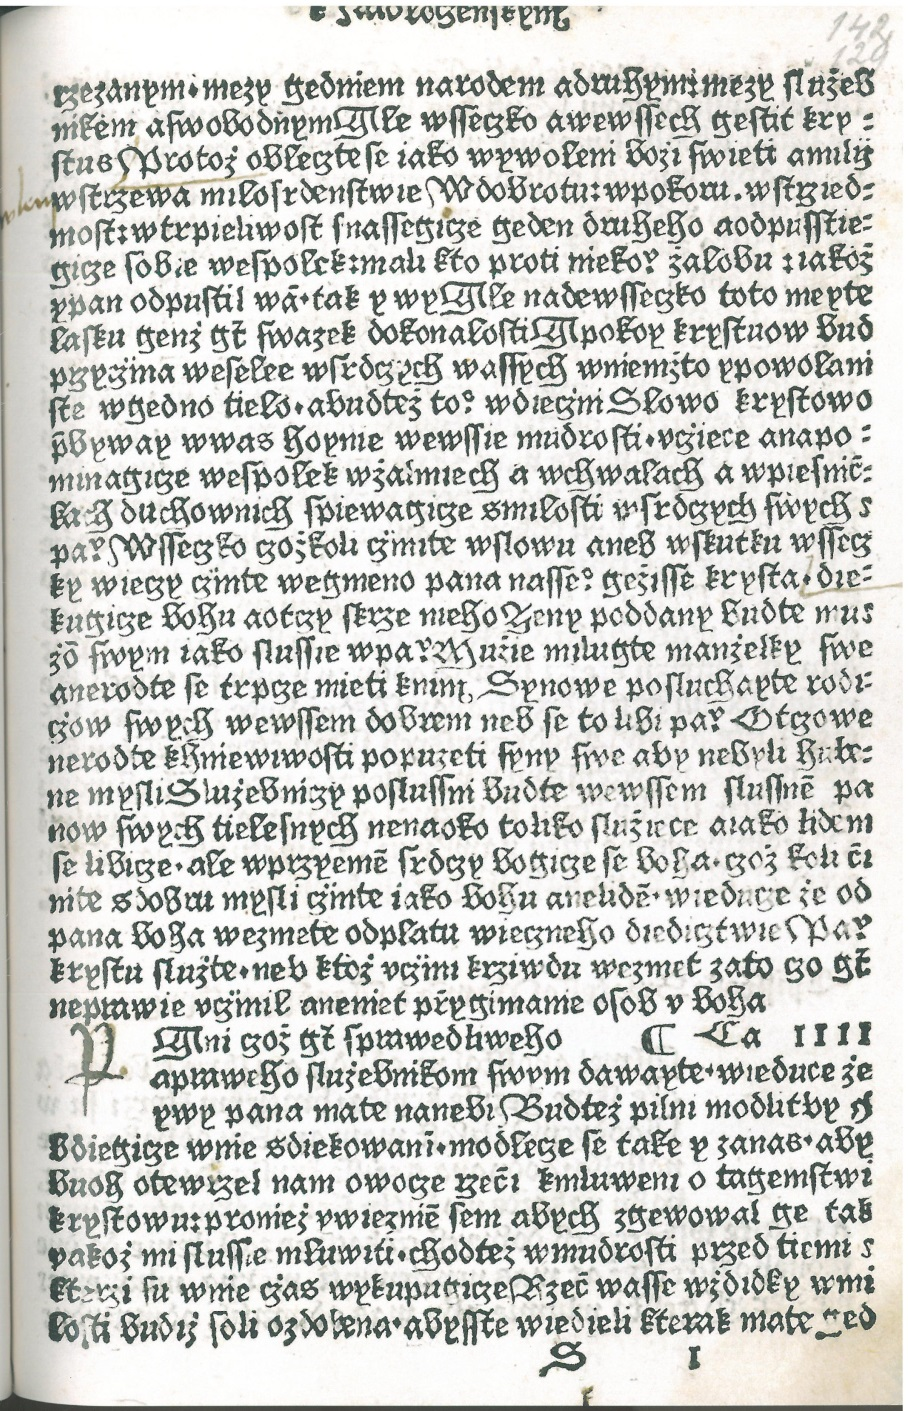 142
129
rzezanym·mezy gedniem narodem adruhym:mezy služeb
nikem aswobodnymAle wsseczko awewssech gestit kry:
stus Protož obleczte se iako wywoleni boži swieti amilij
wstrzewa milosrdenstwie Wdobrotu:wpokoru.wstrzied:
most:wtrpieliwost snassegicze geden druheho aodpusstie:
gicze sobie wespolek:mali kto proti niekoꝛ žalobu:iakož
ypan odpustil wā·tak y wyAle nadewsseczko toto meyte
lasku genž gt̄ swazek dokonalostiApokoy krystuow bud
przyjina weselee wsrdczych wassych wniemžto ypowolani
ste wgedno tielo·abudtež toꝰ wdieczniSlowo krystowo
p̄byway wwas hoynie wewssie mudrosti·vcziece anapo:
minagicze wespolek wžalmiech a wchwalach a wpiesnic̄:
kach duchownich spiewagicze smilosti wsrdczych swych s
paꝛWsseczko czožkoli czinite wslowu aneb wskutku wssecz
ky wieczy czinte wegmeno pana nasseꝰ gežisse krysta·die:
kugicze bohu aotczy skrze nehoZeny poddany budte mus
žō swym iako slussie wpaꝛMužie milugte manželky swe
anerodte se trpcze mieti knim, Synowe posluchayte rodi:
czow swych wewssem dobrem neb se to libi paꝛ Otczowe
nerodte khniewiwosti popuzeti syny swe aby nebyli hube:
ne mysliSlužebniczy poslussni budte wewssem slussnē pa
now swych tielesnych nenaoko toliko služiece aiako lidem
se libicze·ale wprzyemē srdczy bogicze se boha·czož koli c̄i
nite sdobru mysli czinte iako bohu anelidē·wieducze že od
pana boha wezmete odplatu wieczneho diedicztwie Paꝛ
krystu služte·neb ktož vczini krziwdu wezmet zato czo gt̄
neprawie vczinil aneniet prz̄ygimanie osob v boha
PAni czož gt̄ sprawedliweho ¶ Ca IIII
apraweho služebnikom swym dawayte·wieduce že
ywy pana mate nanebi Budtež pilni modlitby
bdiegicze wnie sdiekowanī·modlecze se take y zanas·aby
buoh otewrzel nam owocze rzec̄i kmluweni o tagemstwi
krystowu:proniež ywieznē sem abych zgewowal ge tak
yakož mi slussie mluwiti·chodtež wmudrosti przed tiemi s
kterzi su wnie czas wykupugiczeRzec̄ wasse wždidky wmi
losti budiž soli ozdobena·abysste wiedieli kterak mate ged
S I